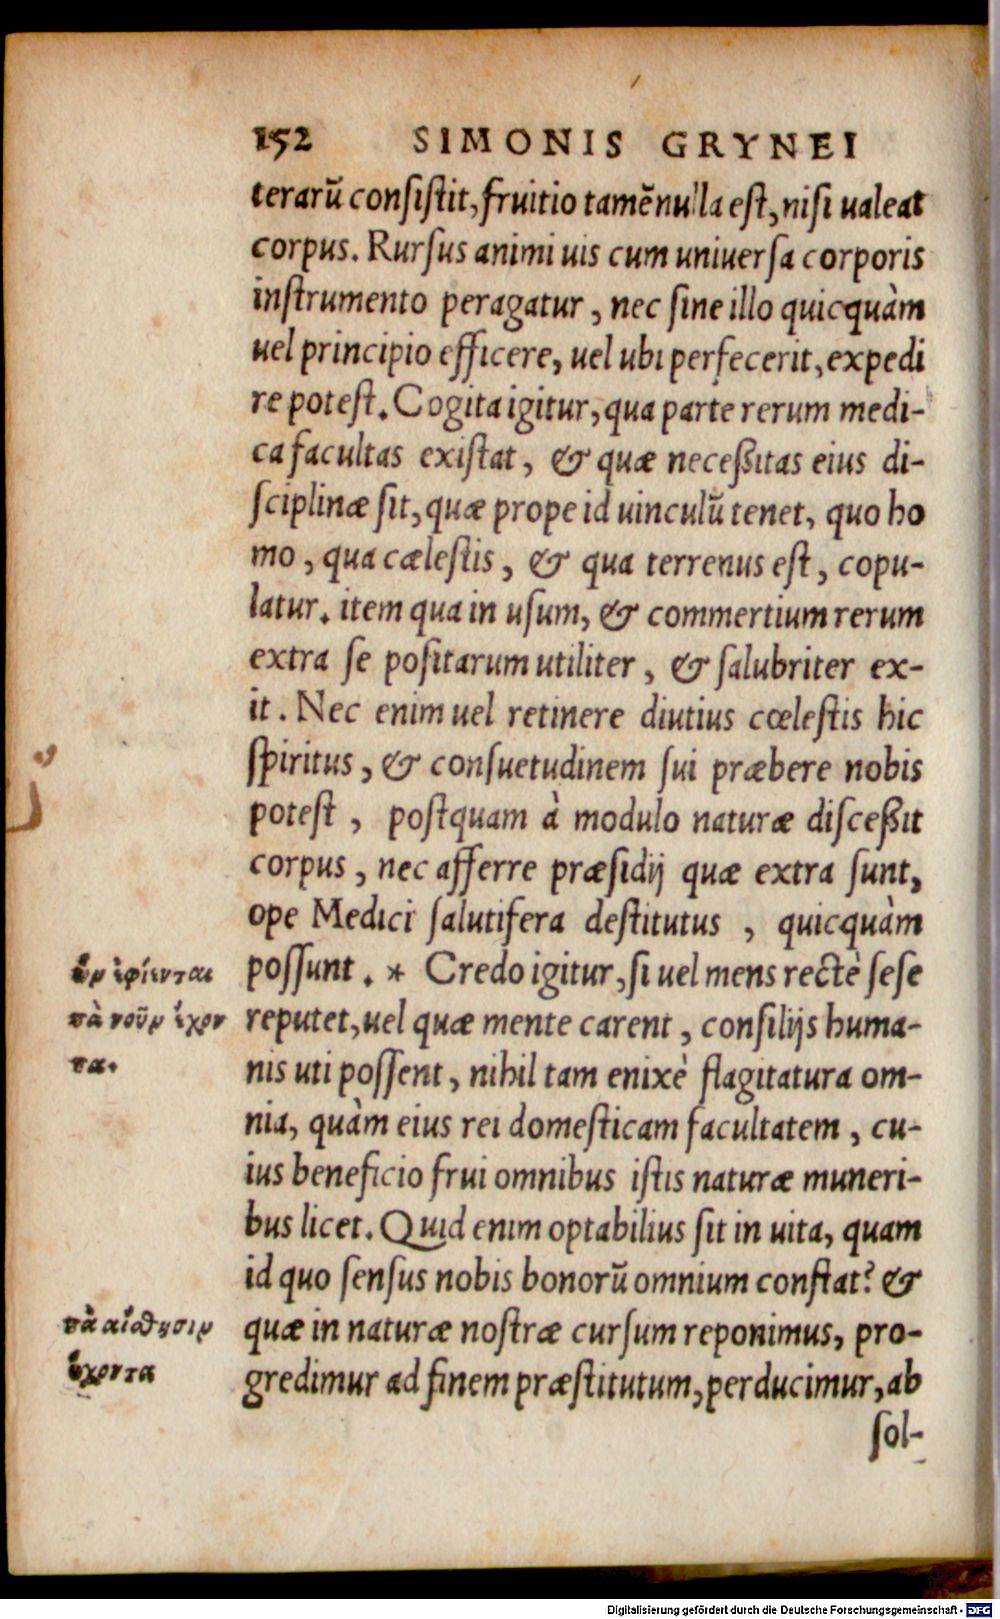 152 SIMONIS GRYNEI
terarū consistit, fruitio tamē nulla est, nisi ualeat
corpus. Rursus animi uis cum uniuersa corporis
instrumento peragatur, nec sine illo quicquàm
uel principio efficere, uel ubi perfecerit, expedi
re potest. Cogita igitur, qua parte rerum medi-
ca facultas existat, & quæ neceßitas eius di-
sciplinæ sit, quæ prope id uinculū tenet, quo ho
mo, qua cælestis, & qua terrenus est, copu-
latur. item qua in usum, & commertium rerum
extra se positarum utiliter, & salubriter ex-
it. Nec enim uel retinere diutius cœlestis hic
spiritus, & consuetudinem sui præbere nobis
potest, postquam à modulo naturæ disceßit
corpus, nec afferre præsidij quæ extra sunt,
ope Medici salutifera destitutus, quicquàm
possunt. * Credo igitur, si uel mens rectè sese
reputet, uel quæ mente carent, consilijs huma-
nis uti possent, nihil tam enixè flagitatura om-
nia, quàm eius rei domesticam facultatem, cu-
ius beneficio frui omnibus istis naturæ muneri-
bus licet. Quid enim optabilius sit in uita, quam
id quo sensus nobis bonorū omnium constat? &
quæ in naturæ nostræ cursum reponimus, pro-
gredimur ad finem præstitutum, perducimur, ab
sol-
ἐφίενται
τὰ νοῦν ἔχον
τα.
τὰ αἴσθησιν
ἔχοντα
Digitalisierung gefördert durch die Deutsche Forschungsgemeinschaft - DFG